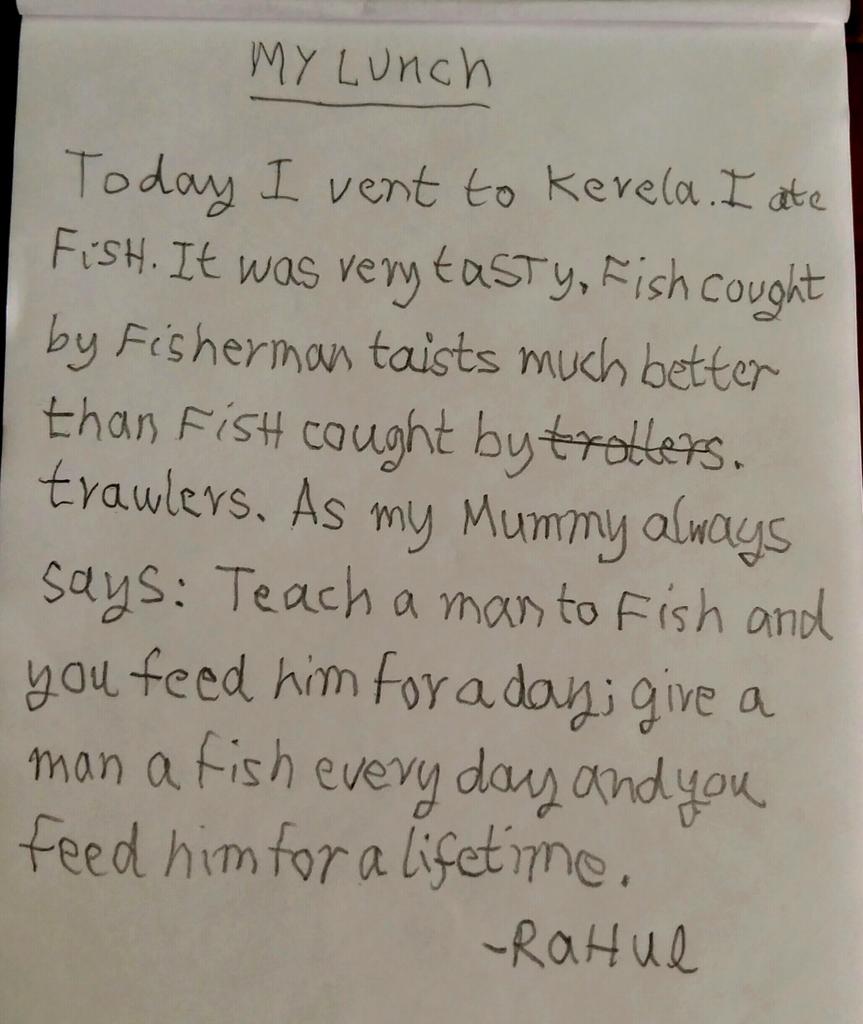 MY LUnch
Today I vent to Kerela. I ate
FisH. It was very taSTy. Fish cought
by Fisherman taists much better
than FisH cought by trollers.
trawlers. As my Mummy always
says: Teach a man to Fish and
you feed him for a day; give a
man a fish every day and you
feed him for a lifetime.
-RaHul